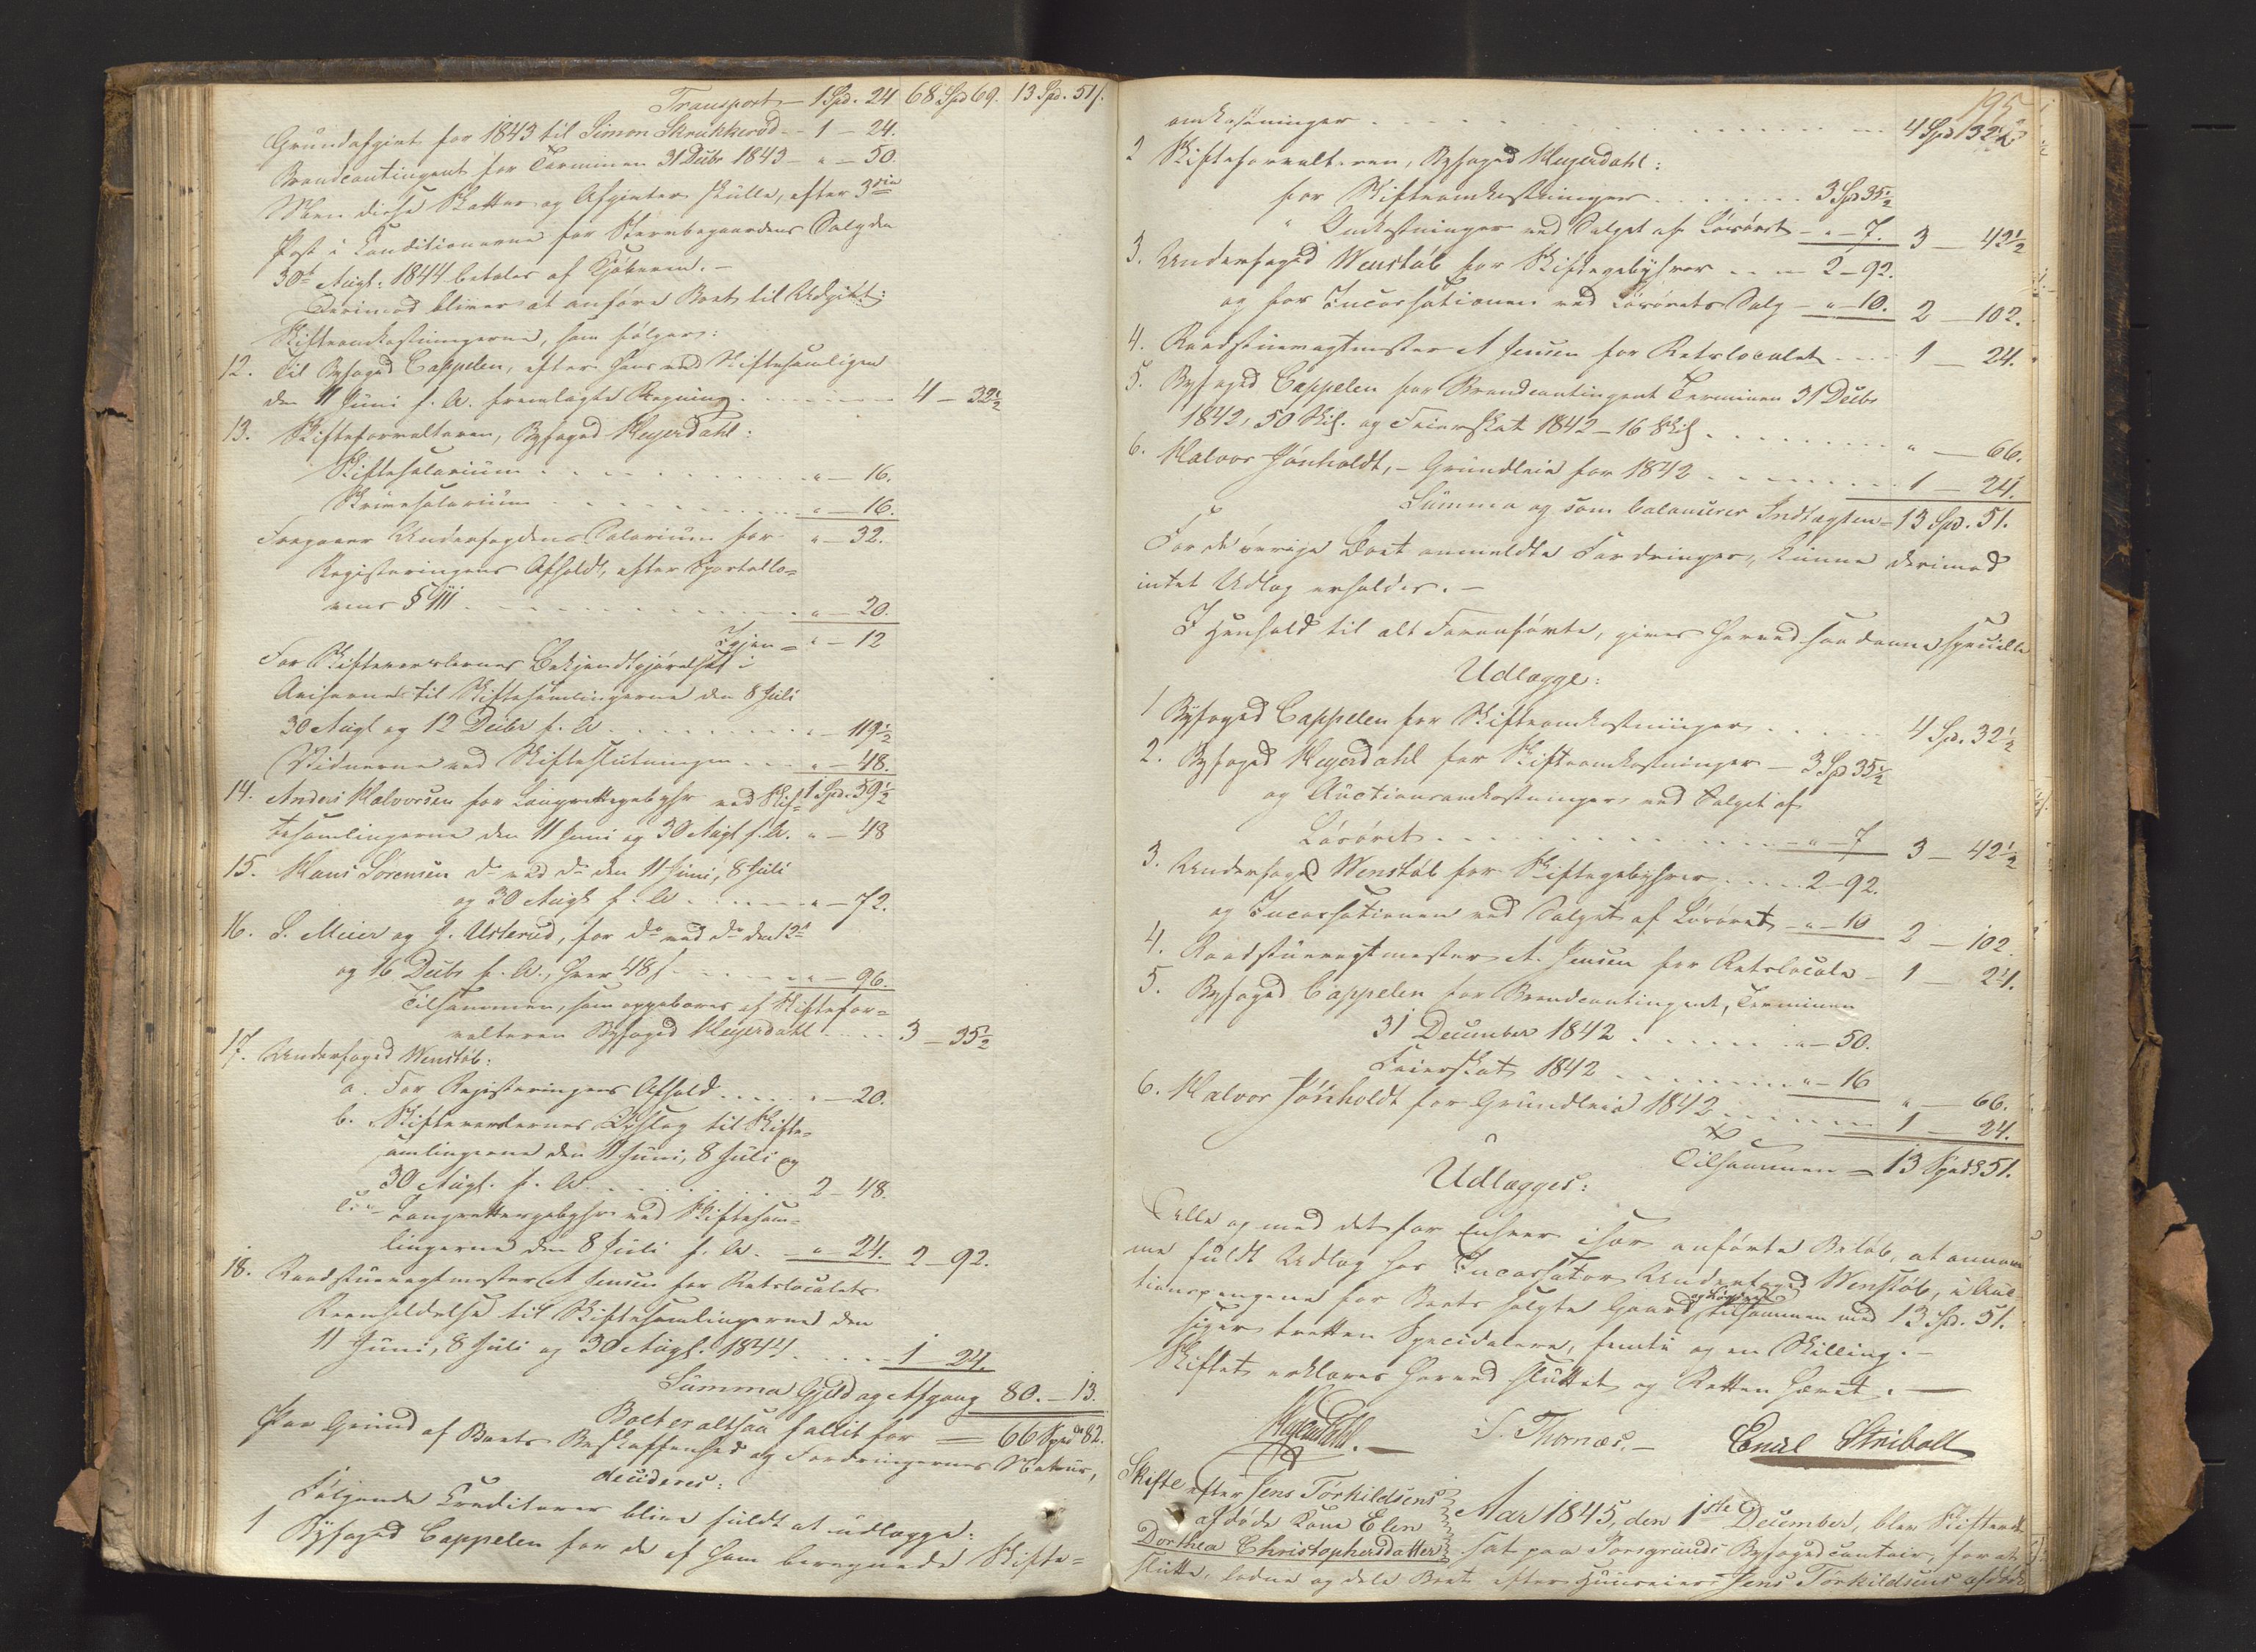 Transport – 1 Spd. 24 68 Spd 69. 13 Spd. 51 ſ.
Grundafgivt for 1843 til Simon Skrukkerød – 1 – 24.
Brandcontingent for Terminen 31 Decbr 1843 – " – 50.
Men disse Skatter og Afgivter skulle, efter 3die
Post i Conditionerne for Stervbogaardens Salg den
30te Augt. 1844 betales af Kjøberen. –
Derimod bliver at anføre Boet til Udgivt:
Skifteomkostningerne, som følger:
12. Til Byfoged Cappelen, efter hans ved Skiftesamlingen
den 11 Juni f. A. fremlagte Regning 4 – 32½
13. Skifteforvalteren, Byfoged Heyerdahl:
Skiftesalarium " – 16.
Skriversalarium " – 16.
" – 32.
Fragaaer Underfogdens Salarium for
Registeringens Afholdt, efter Sportello-
vens § 111 " – 20.
Igjen = " – 12
For Skifteværternes Bekjendtgjørelse i
Aviserne til Skiftesamlingerne den 8 Juli
30 Augt og 12 Decbr f. A. " – 119½
Vidnerne ved Skifteslutningen " – 48.
1 Spd. 59½
14. Anders Halvorsen for Laugrettegebyhr ved Skif-
tesamlingerne den 11 Juni og 30 Augt f. A. " – 48
15. Hans Sørensen do ved do den 11 Juni, 8 Juli
og 30 Augt f. A. " – 72.
16. S. Meier og J. Usterud, for do ved do den 12te
og 16 Decbr f. A., hver 48 ſ " – 96.
Tilsammen, som oppebæres af Skiftefor-
valteren Byfoged Heyerdahl 3 – 35½
17. Underfoged Wenstøb:
a. For Registeringens Afhold " – 20.
b. Skifteværternes Opslag til Skifte-
samlingerne den 11 Juni, 8 Juli og
30 Augt. f. A. 2 – 48.
c. Laugrettegebyhr ved Skiftesam-
lingerne den 8 Juli f. A. – " – 24. 2 – 92.
18. Raadstuevagtmester A Jensen for Retslocalets
Reenholdelse til Skiftesamlingerne den
11 Juni, 8 Juli og 30 Augt. 1844 1 24.
Summa Gjeld og Afgang 80. – 13.
Boet er altsaa fallit for = 66 Spd 82.
Paa Grund af Boets Beskaffenhed og Fordringernes Natur,
decideres:
Følgende Creditorer blive fuldt at udlægge:
1 Byfoged Cappelen for de af ham beregnede Skifte-
195
omkostninger 4 Spd 32½
2 Skifteforvalteren, Byfoged Heyerdahl:
for Skifteomkostninger 3 Spd 35½
" Omkostninger ved Salget af Løsøret – " – 7. 3 – 42½
3. Underfoged Wenstøb for Skiftegebyhrer 2 – 92.
og for Incassationen ved Løsørets Salg – " – 10. 2 – 102.
4. Raadstuevagtmester A Jensen for Retslocalet 1 – 24.
5. Byfoged Cappelen for Brandcontingent Terminen 31 Decbr
1842, 50 Skil. og Feierskat 1842 – 16 Skil " – 66.
6. Halvor Jønholdt, – Grundleie for 1842 1 – 24.
Summa og som balancerer Indtægten = 13 Spd. 51.
For de øvrige Boet anmeldte Fordringer, kunne derimod
intet Udlog erholdes. –
I Henhold til alt Foranførte, gives herved saadanne specielle
Udlægge:
1 Byfoged Cappelen for Skifteomkostninger 4 Spd. 32½
2. Byfoged Heyerdahl for Skifteomkostninger – 3 Spd 35½
og Auctionsomkostninger ved Salget af
Løsøret – " – 7 3 – 42½
3. Underfoged Wenstøb for Skiftegebyhrer 2 – 92.
og Incassationen ved Salget af Løsøret – " – 10 2 – 102.
4. Raadstuevagtmester A. Jensen for Retslocale – 1 – 24.
5. Byfoged Cappelen for Brandcontingent, Terminen
31 December 1842 " – 50.
Feierskat 1842 " – 16 " – 66.
6. Halvor Jønholdt for Grundleie 1842 1 – 24.
Tilsammen = 13 Spd 51.
Udlægges:
Alle og med det for Enhver især anførte Beløb, at annam-
me fuldt Udlog hos Incassator Underfoged Wenstøb, i Auc-
tionspengene for Boets solgte Gaard og Løsøre tilsammen med 13 Spd. 51.
siger tretten Speciedalere, femti og en Skilling. –
Skiftet erklæres herved sluttet og Retten hævet. –
Heyerdahl. – S. Thomæs. – Enul Stribolt
Skifte efter Jens Torkildsens
afdøde Kone Elen
Dorthea Christophersdatter
Aar 1845, den 1ste December, blev Skifteret
sat paa Porsgrunds Byfogedcontoir, for at
slutte, lodne og dele Boet efter Huuseier Jens Torkildsens afdøde